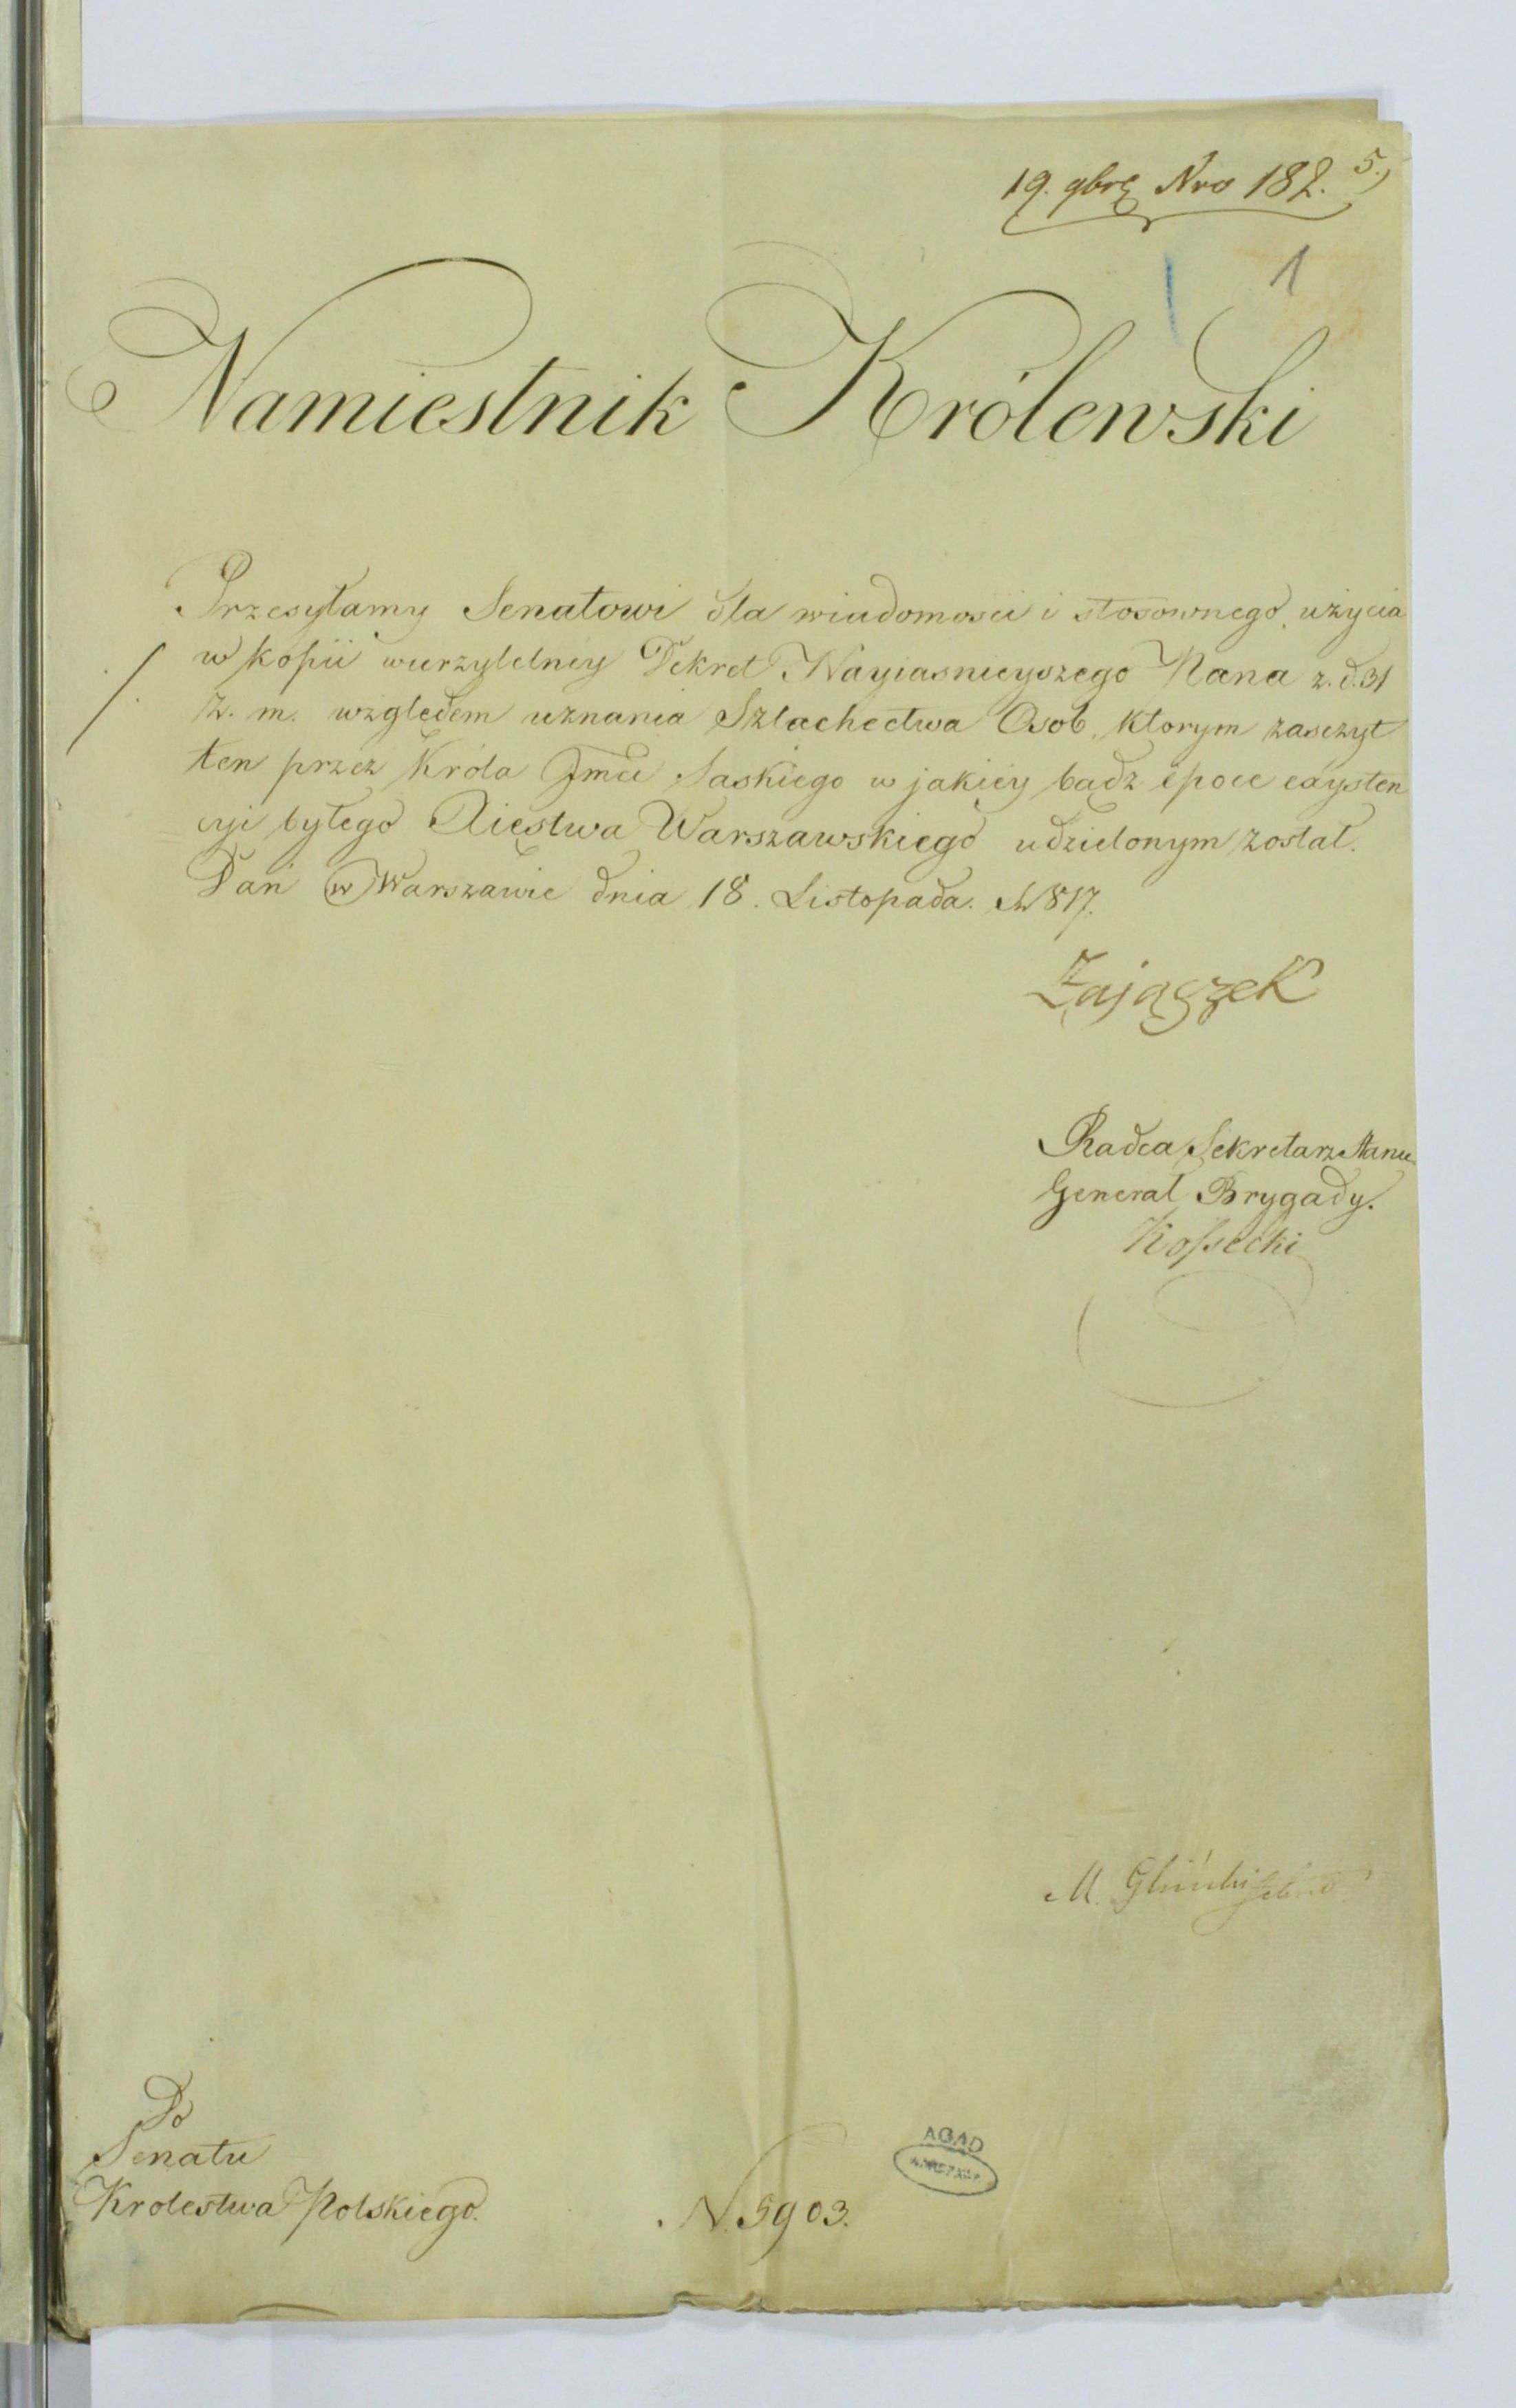 19. 9brę Nro 182. 5.)
1
Namiestnik Królewski
Przesyłamy Senatowi dla wiadomosci i stosownego użycia
w kopii wierzytelney Dekret Nayiasnieyszego Pana z. d. 31
z. m. względem uznania Szlachectwa Osob, ktorym zaszczyt
ten przez Króla Jmci Saskiego w jakiey bądz epoce exysten
cyi byłego Xięstwa Warszawskiego udzielonym został.
Dań w Warszawie dnia 18. Listopada. 1817.
Zajączek
Radca Sekretarz Stanu
Generał Brygady.
Kossecki
M. Gliński
Do
Senatu
Krolestwa Polskiego.
N. 5903.
AGAD
WARSZAWA